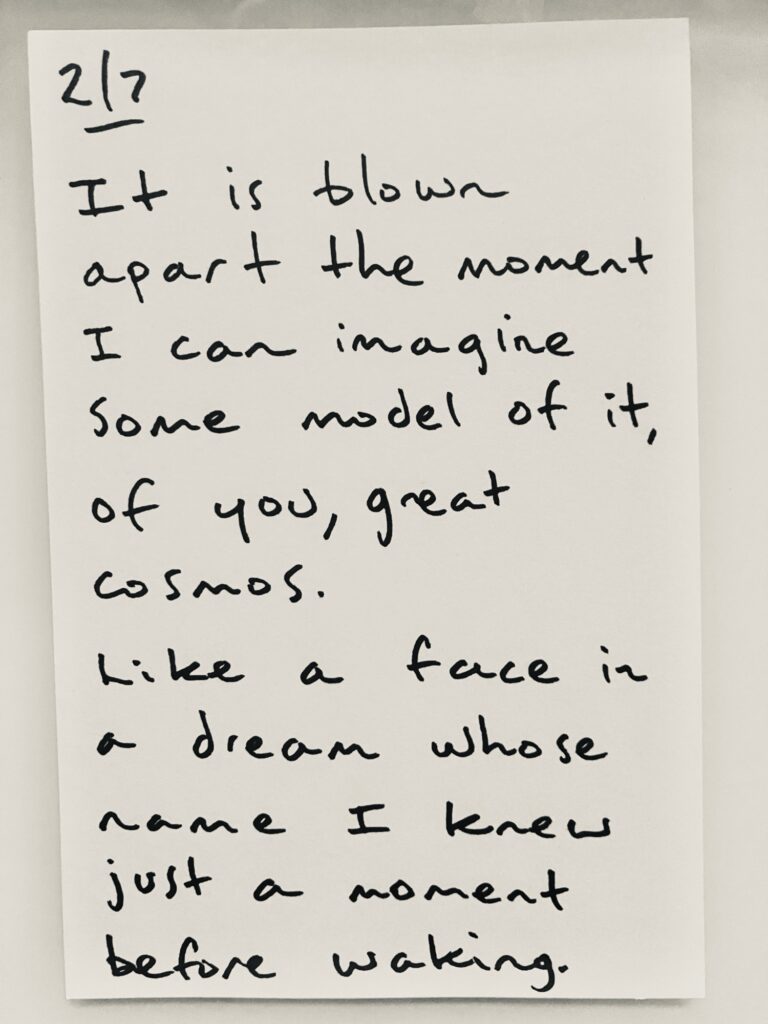 2/7
It is blown
apart the moment
I can imagine
some model of it,
of you, great
cosmos.
Like a face in
a dream whose
name I knew
just a moment
before waking.